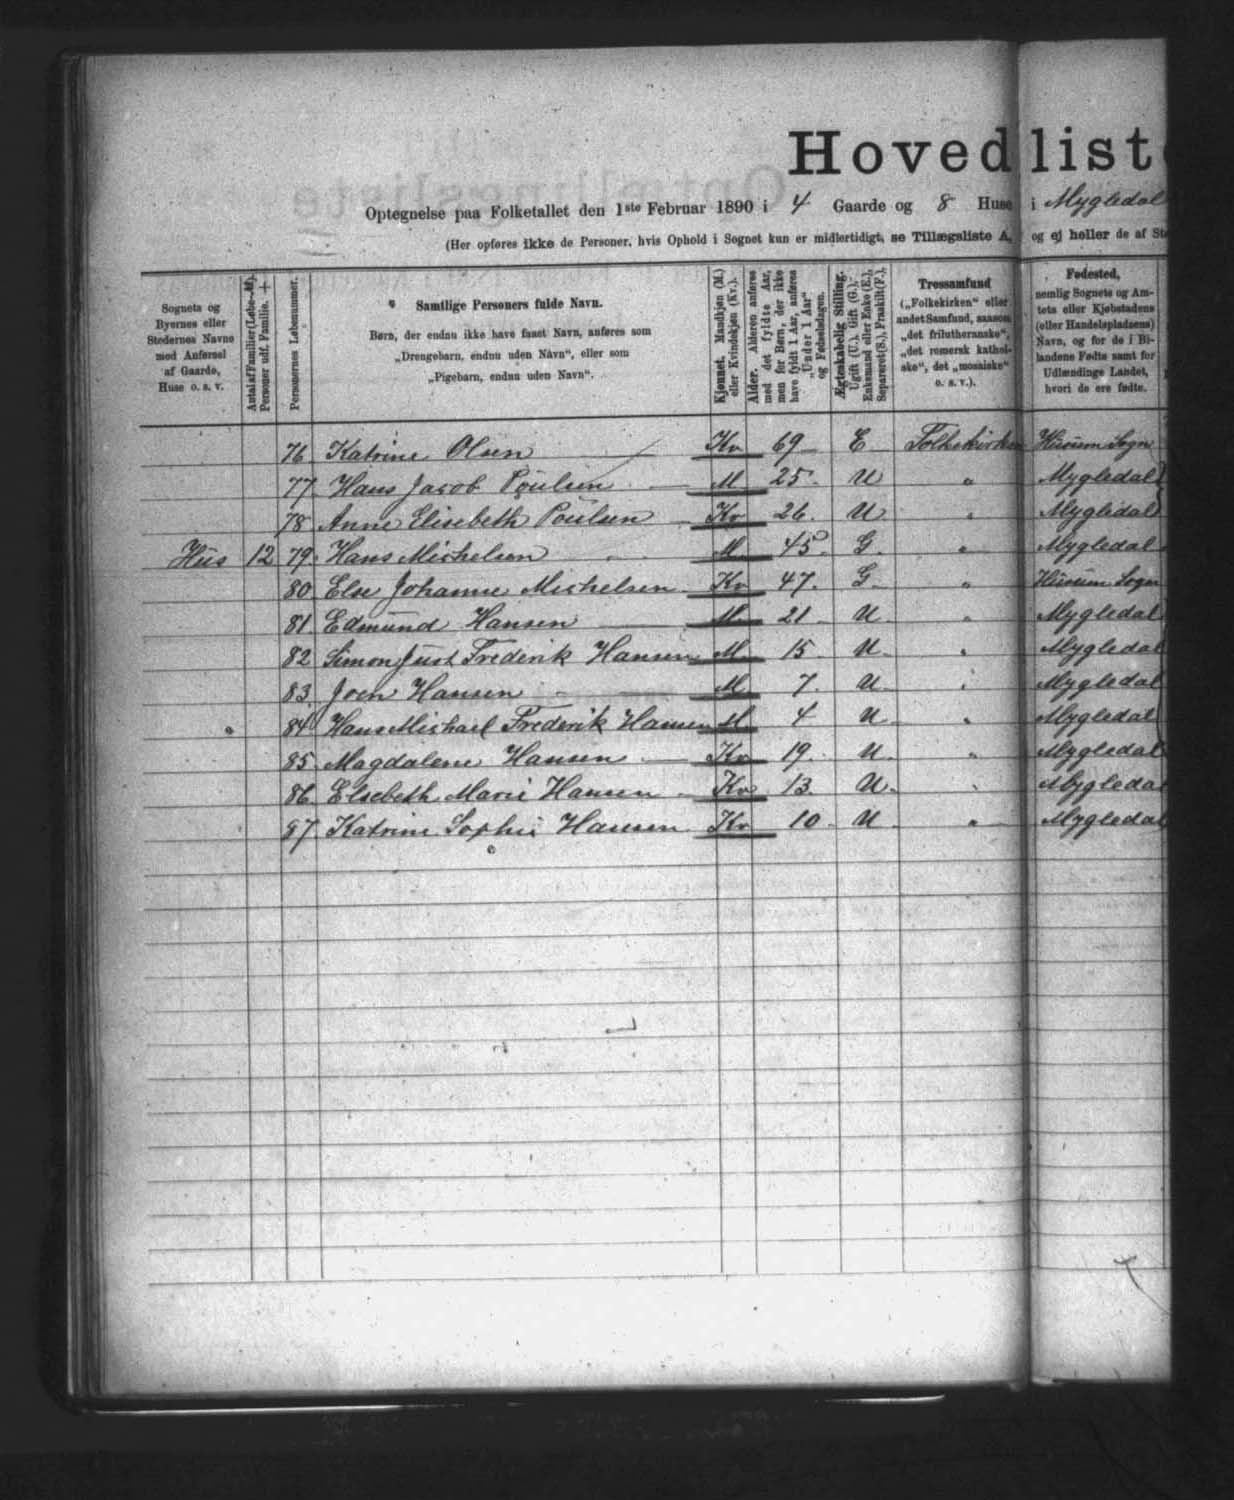 Hovedliste
Optegnelse paa Folketallet den 1ste Februar 1890 i 4 Gaarde og 8 Huse i Mygledal
(Her opføres ikke de Personer, hvis Ophold i Sognet kun er midlertidigt, se Tillægsliste A, og ej heller de af
Sognets og Byernes eller Stedernes Navne med Anførsel af Gaarde, Huse o. s. v.
Antal af Familier (Løbe-№). Personer udf. Familie. +
Personernes Løbenummer.
Samtlige Personers fulde Navn.
Børn, der endnu ikke have faaet Navn, anføres som
„Drengebarn, endnu uden Navn“, eller som
„Pigebarn, endnu uden Navn“.
Kjønnet. Mandkjøn (M.) eller Kvindekjøn (Kv.).
Alder. Alderen anføres med det fyldte Aar, men for Børn, der ikke have fyldt 1 Aar, anføres „Under 1 Aar“ og Fødselsdagen.
Ægteskabelig Stilling. Ugift (U.), Gift (G.), Enkemand eller Enke (E.), Separeret (S.), Fraskilt (F.).
Trossamfund („Folkekirken“ eller andet Samfund, saasom „det frilutheranske“, „det romersk katholske“, det „mosaiske“ o. s. v.).
Fødested, nemlig Sognets og Amtets eller Kjøbstadens (eller Handelspladsens) Navn, og for de i Bilandene Fødte samt for Udlændinge Landet, hvori de ere fødte.
76 Katrine Olsen Kv 69 E Folkekirken Húsum Sogn
77 Hans Jacob Poulsen M 25 U " Mygledal
78 Anne Elisebeth Poulsen Kv 26 U " Mygledal
Hús 12 79 Hans Michelsen M 45 G " Mygledal
80 Else Johanne Michelsen Kv 47 G " Húsum Sogn
81 Edmund Hansen M 21 U " Mygledal
82 Simon Just Frederik Hansen M 15 U " Mygledal
83 Joen Hansen M 7 U " Mygledal
84 Hans Michael Frederik Hansen M 4 U " Mygledal
85 Magdalene Hansen Kv 19 U " Mygledal
86 Elsebeth Marie Hansen Kv 13 U " Mygledal
87 Katrine Sophie Hansen Kv 10 U " Mygledal